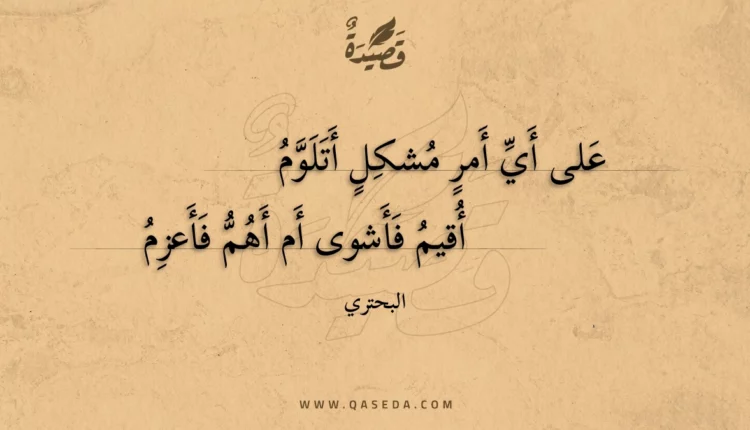 قَصِيْدَةٌ
عَلى أَيِّ أَمرٍ مُشكِلٍ أَتَلَوَّمُ
أُقيمُ فَأَشوى أَم أَهُمُّ فَأَعزِمُ
البحتري
WWW.QASEDA.COM